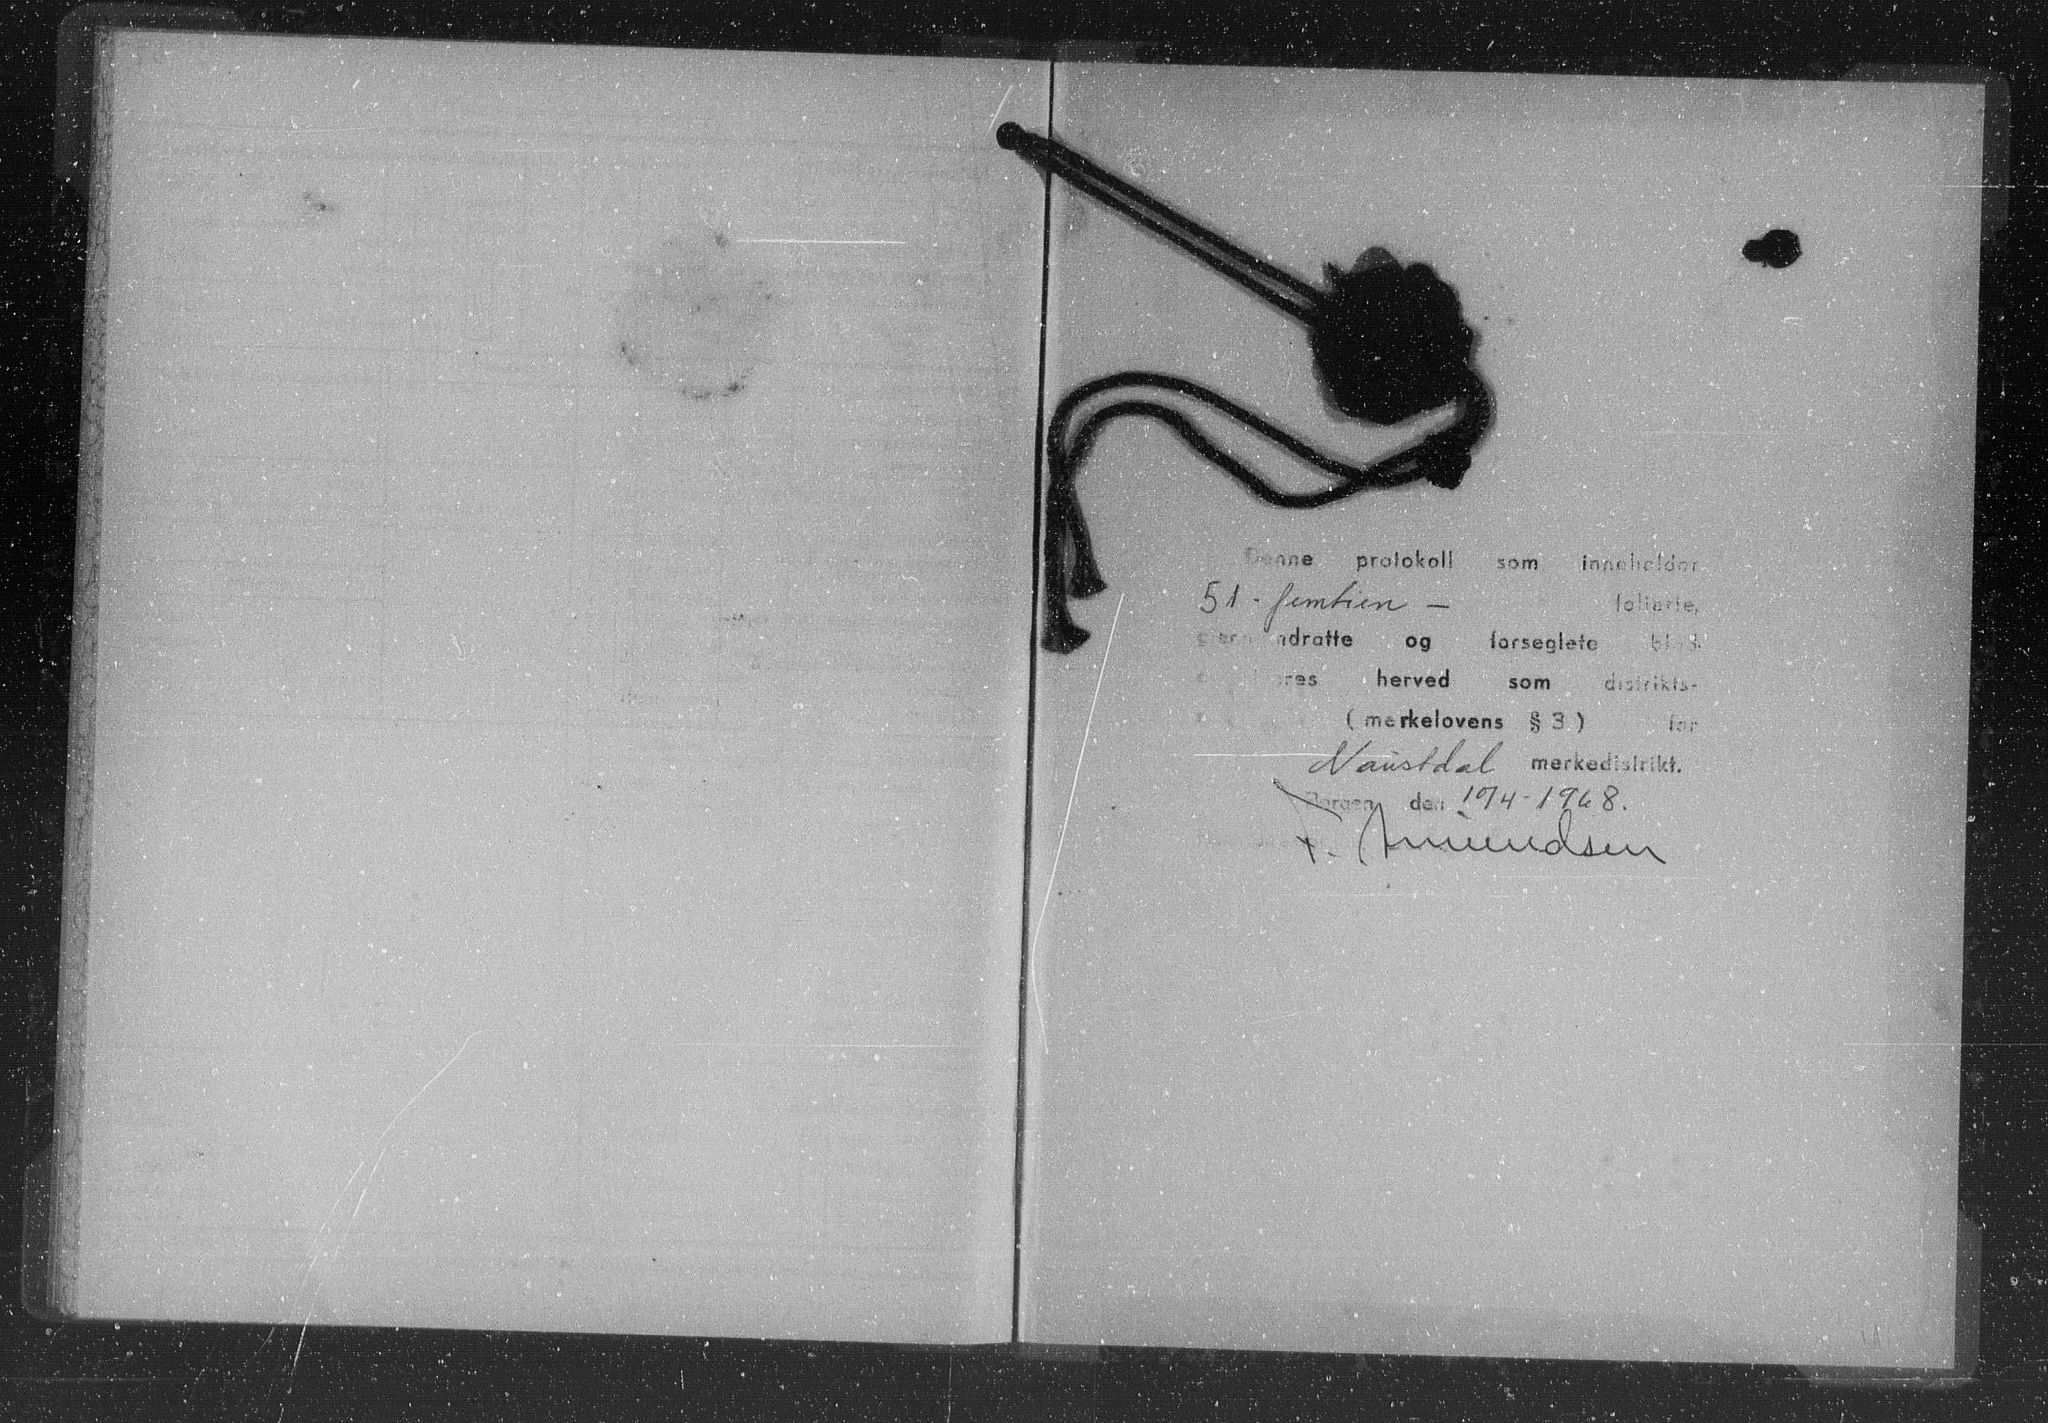 Denne protokoll som inneholder
51 - femtien - folierte,
og forseglete
herved som distrikts-
(merkelovens § 3) for
Naustdal merkedistrikt.
Bergen den 17/4-1968.
F. Amundsen